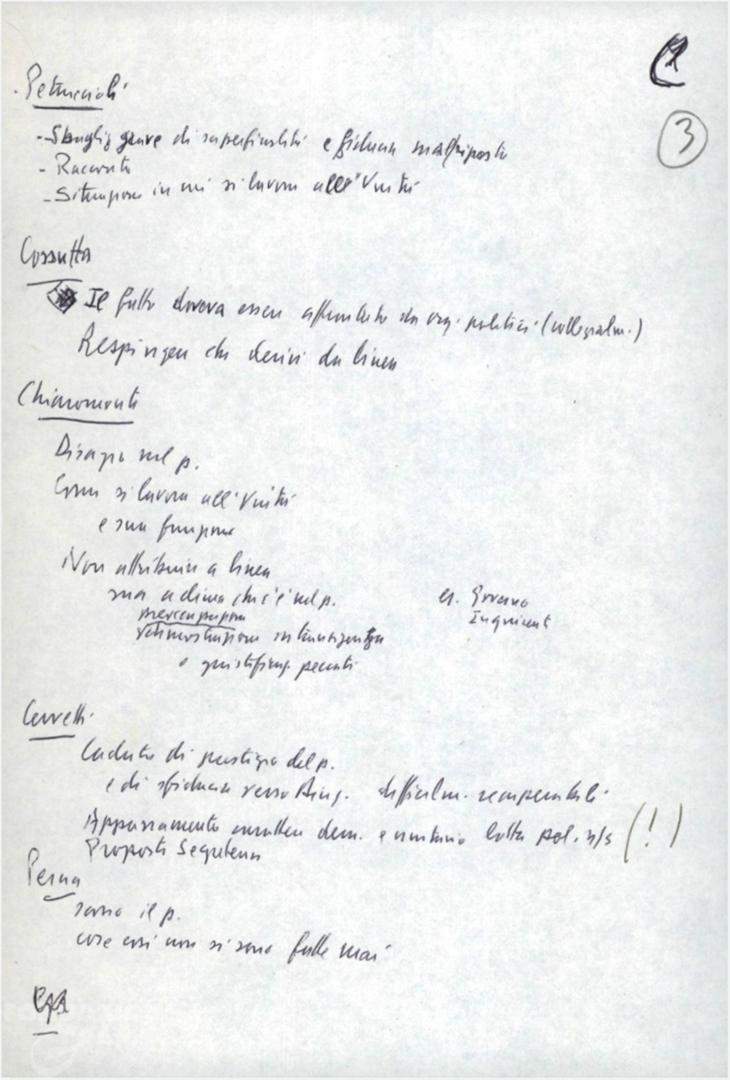 3
Petruccioli
- Sbaglio grave di superficialità e fiducia malriposta
- Racconto
- Situazione in cui si lavora all'Unità
Cossutta
Il fatto doveva essere affrontato da org. politici (collegialm.)
Respingere che derivi da linea
Chiaromonte
Disagio nel p.
Come si lavora all'Unità
e sua funzione
Non attribuire a linea
ma a clima che c'è nel p.
es. Governo
preoccupazione
Inquirenti
dimostrazione
o giustificaz.
Cervetti
Caduta di prestigio del p.
e di sfiducia verso difficilm. recuperabile
Appannamento carattere dem. e unitario lotta pol. n/s (!)
Proposta Segreteria
Perna
sono il p.
cose così non si sono fatte mai